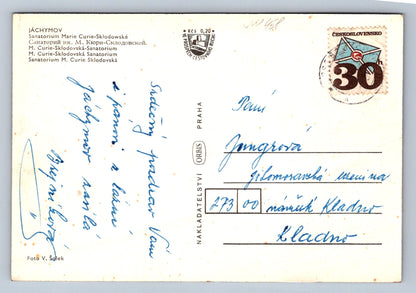 JÁCHYMOV
Sanatorium Marie Curie-Skłodowské
Санаторий им. М. Кюри-Склодовский
M. Curie-Skłodovská-Sanatorium
M. Curie-Skłodovská-Sanatorium
Sanatorium M. Curie Skłodovská
Kčs 0,20
ČESKOSLOVENSKO
30
Srdečný pozdrav Vám
i panovi z lázní
Jáchymov zasílá
Foto V. Šolek
NAKLADATELSTVÍ ORBIS PRAHA
Paní
Jungrová
273 00
Kladno
Kladno